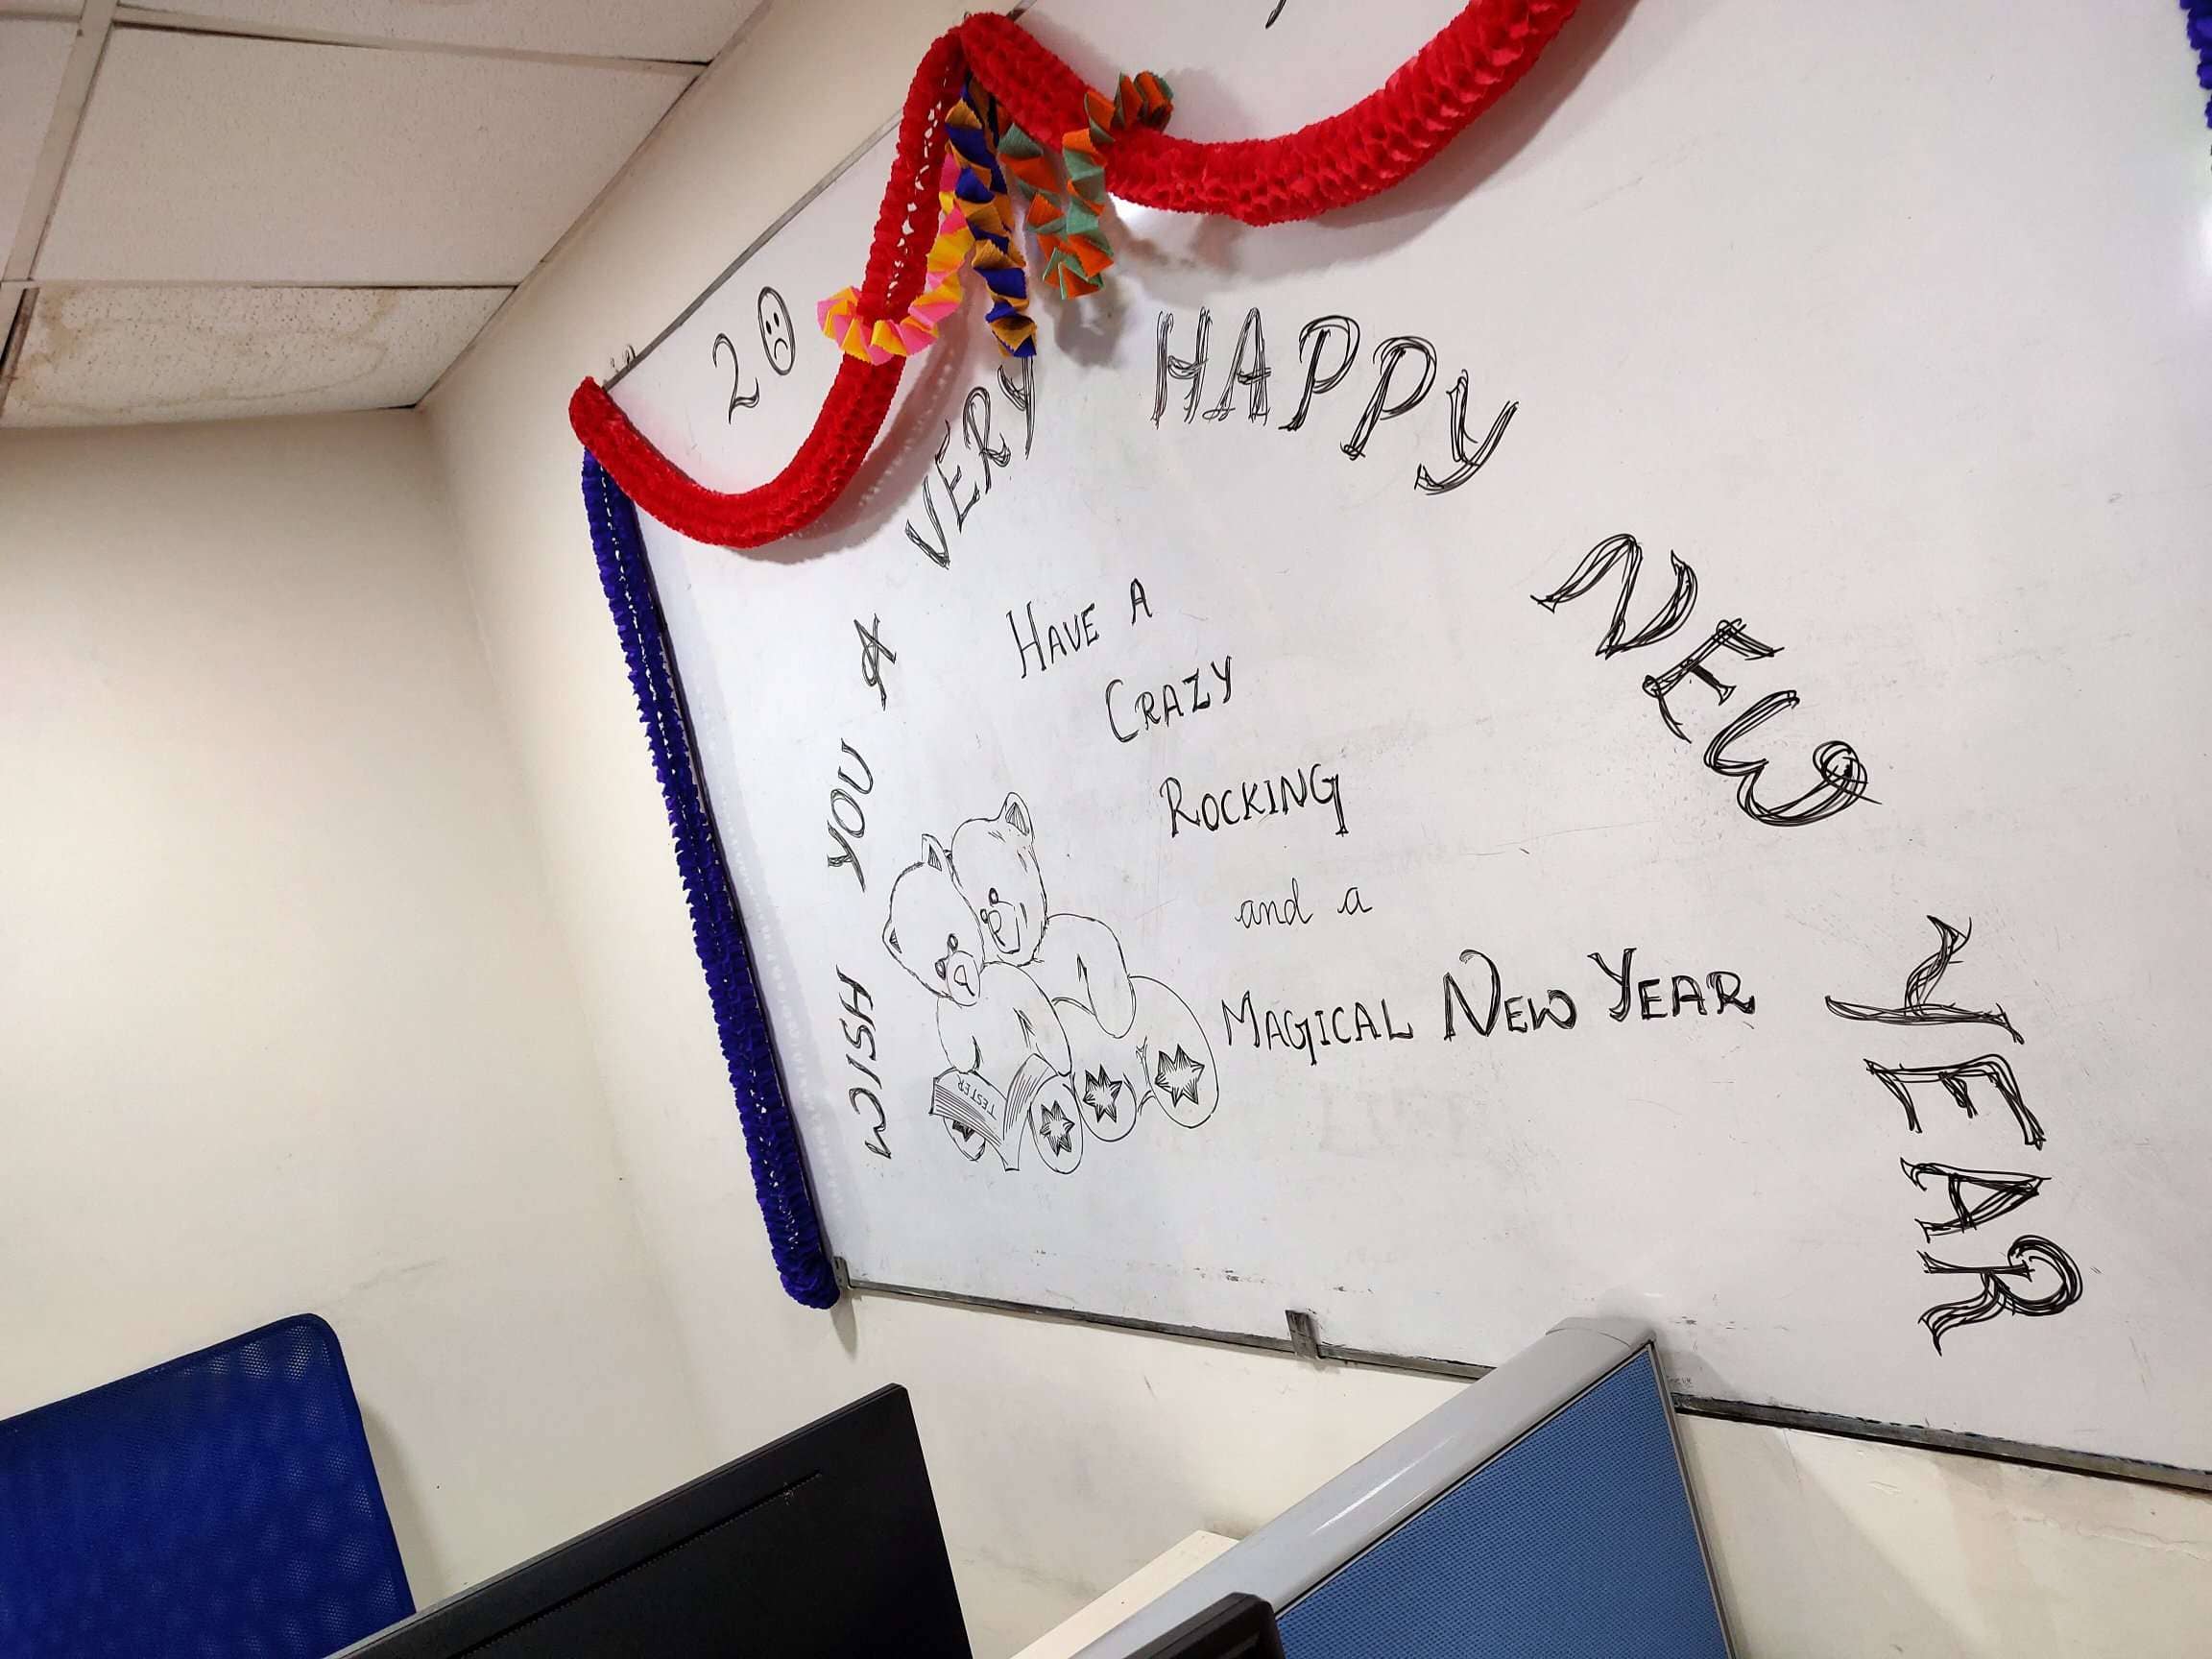 20
WISH YOU A VERY HAPPY NEW YEAR
HAVE A
CRAZY
ROCKING
and a
MAGICAL NEW YEAR
TESTER